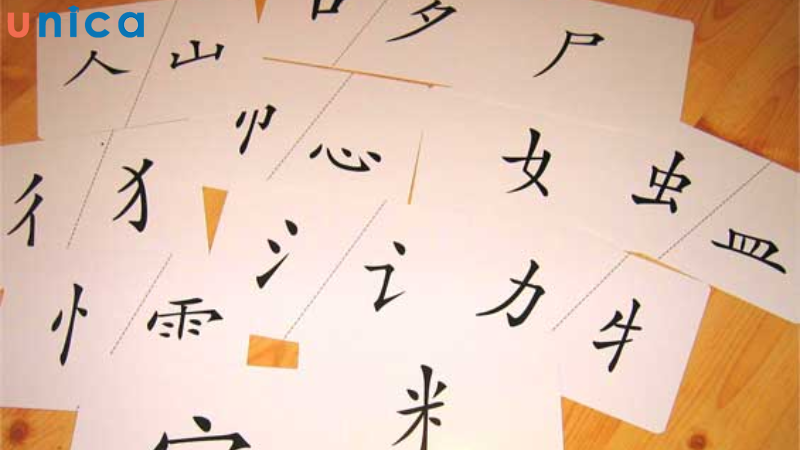 unica
人 山
夕 尸
心
女 虫 皿
彳 犭
氵 讠 力 牜
忄 ⻗
米